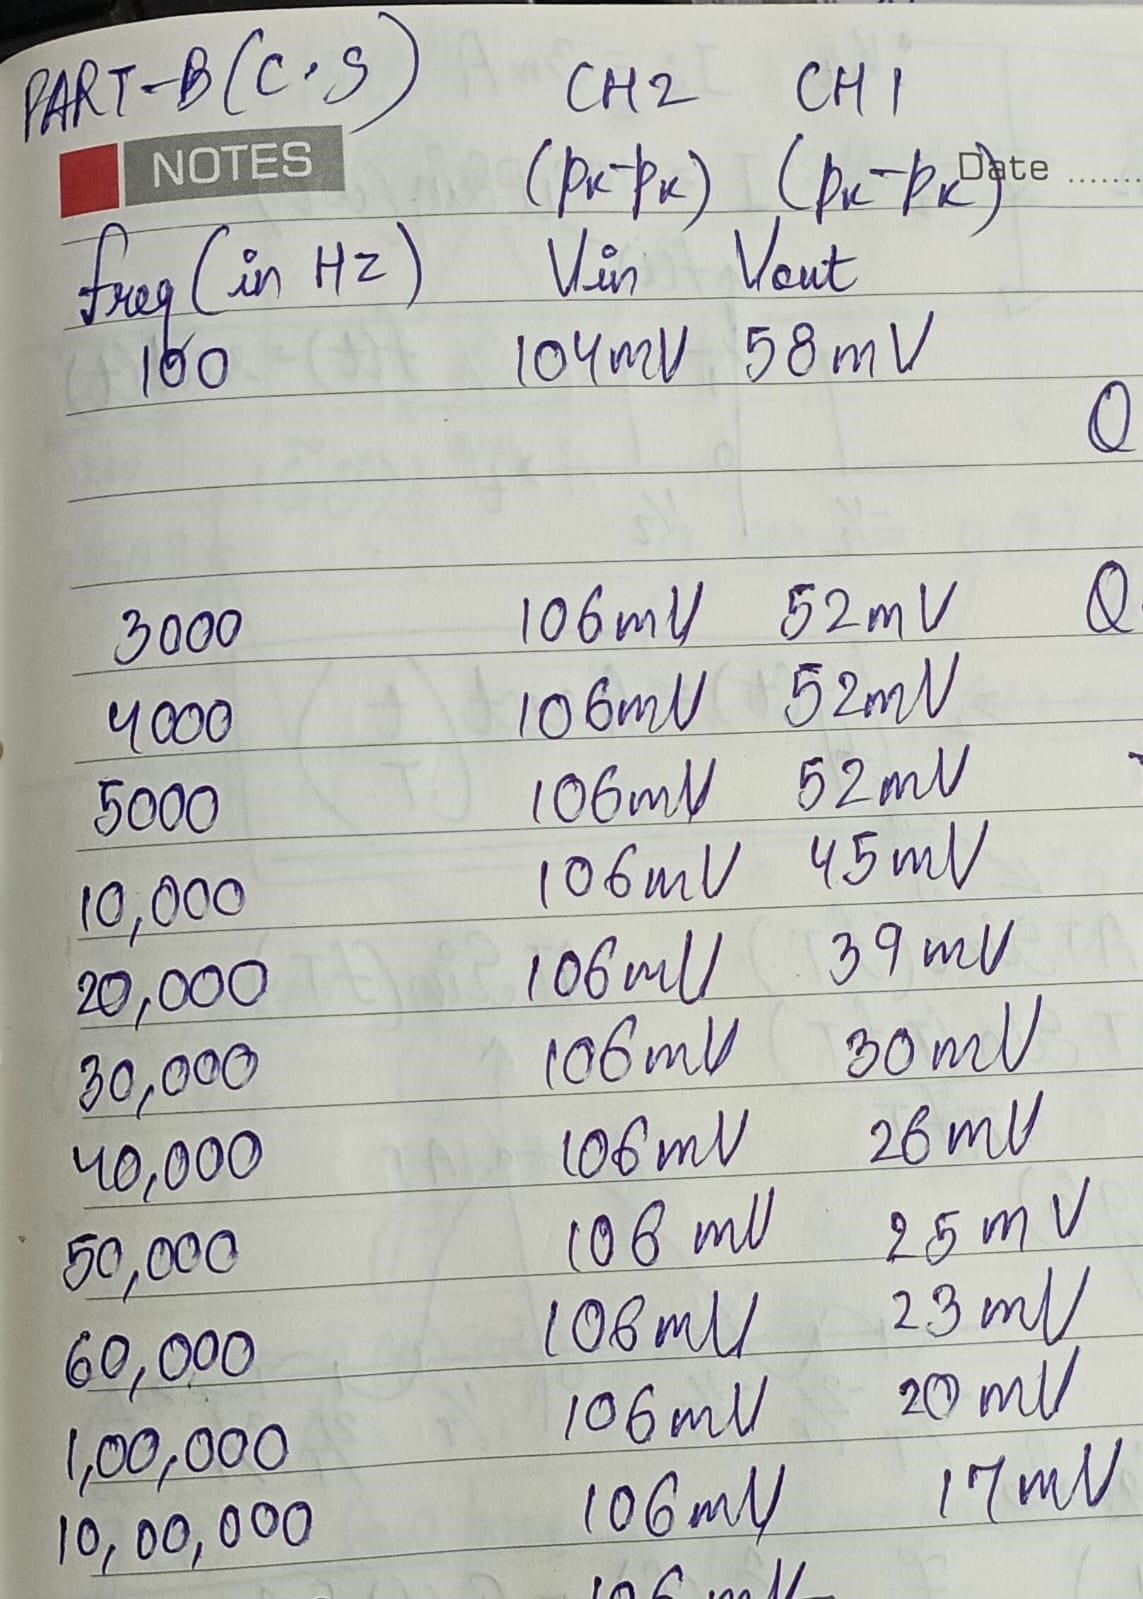 PART-B (C.S) CH2 CH1
NOTES (pk-pk) (pk-pk) Date .......
freq (in Hz) Vin Vout
100 104mV 58mV
Q
3000 106mV 52mV Q
4000 106mV 52mV
5000 106mV 52mV
10,000 106mV 45mV
20,000 106mV 39mV
30,000 106mV 30mV
40,000 106mV 26mV
50,000 106mV 25mV
60,000 106mV 23mV
1,00,000 106mV 20mV
10,00,000 106mV 17mV
106mV